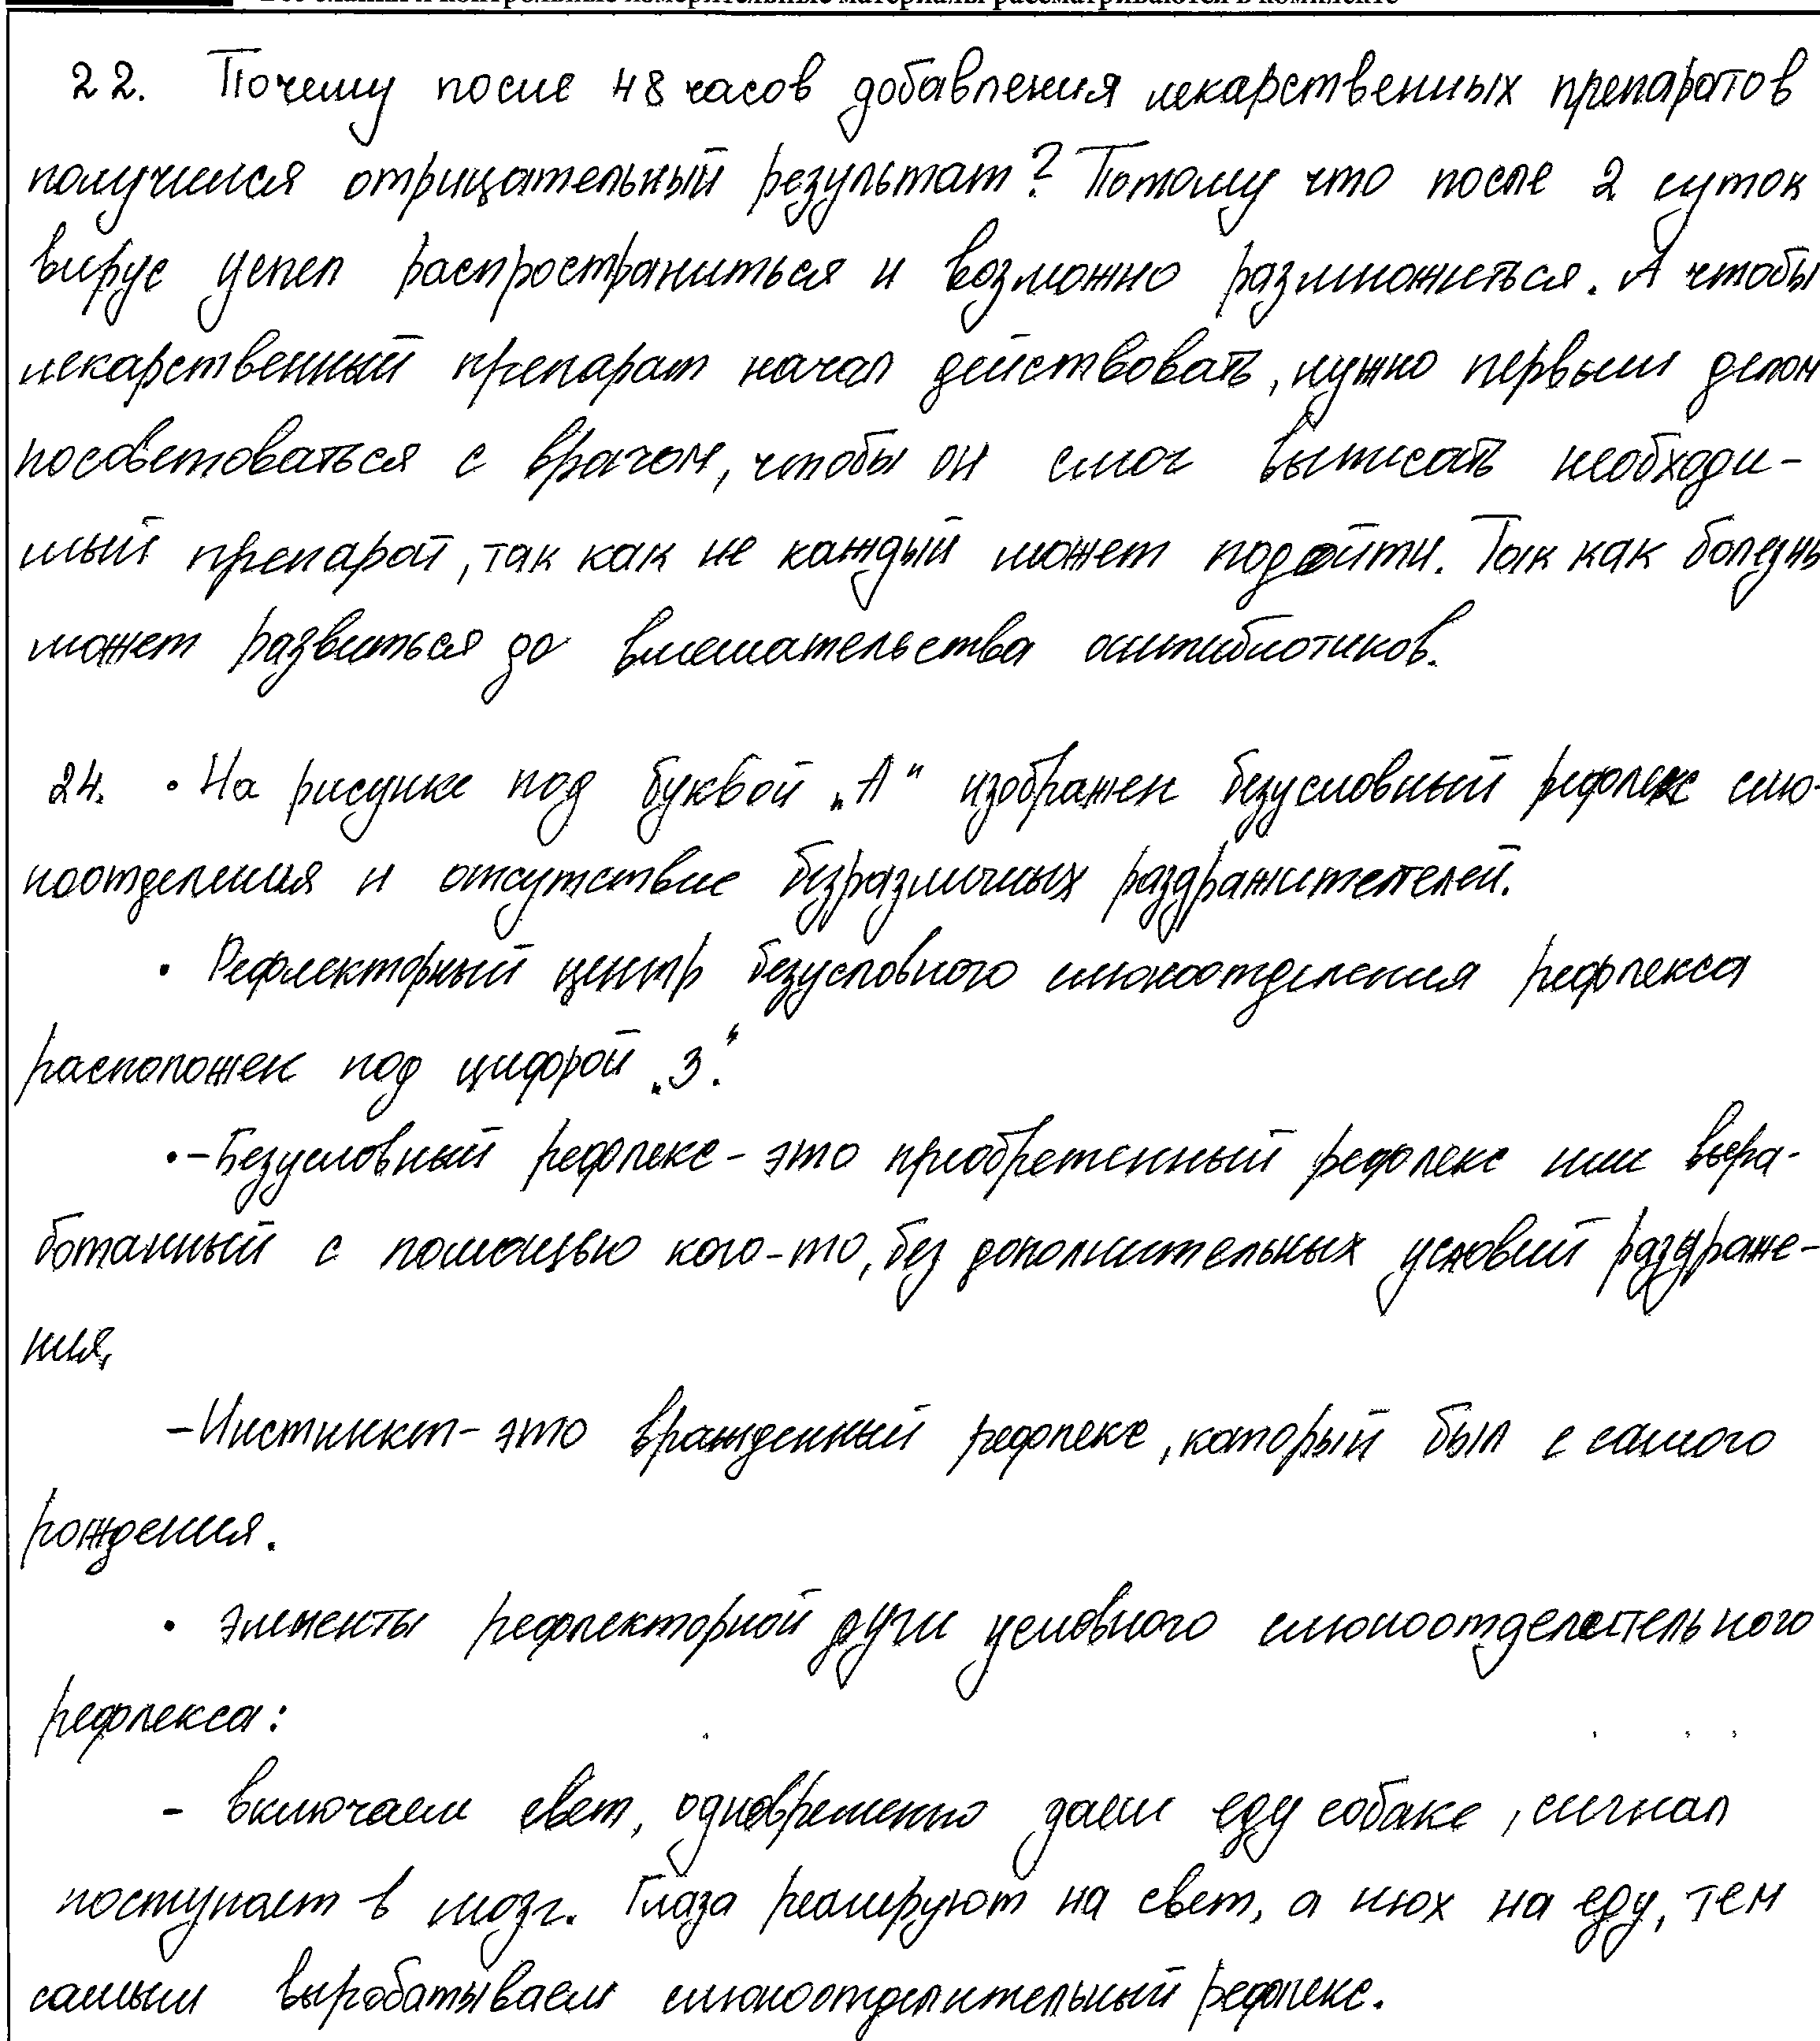 22. Почему после 48 часов добавления лекарственных препаратов
получился отрицательный результат? Потому что после 2 суток
вирус успел распространиться и возможно размножиться. А чтобы
лекарственный препарат начал действовать, нужно первым делом
посоветоваться с врачом, чтобы он смог выписать необходи-
мый препарат, так как не каждый может подойти. Так как болезнь
может развиться до вмешательства антибиотиков.
24. • На рисунке под буквой „А" изображен безусловный рефлекс слю-
ноотделения и отсутствие безразличных раздражителей.
• Рефлекторный центр безусловного слюноотделения рефлекса
расположен под цифрой „3".
• - Безусловный рефлекс - это приобретенный рефлекс или выра-
ботанный с помощью кого-то, без дополнительных условий раздраже-
ния,
- Инстинкт - это врожденный рефлекс, который был с самого
рождения.
• Элементы рефлекторной дуги условного слюноотделительного
рефлекса:
- включаем свет, одновременно даем еду собаке, сигнал
поступает в мозг. Глаза реагируют на свет, а нюх на еду, тем
самым вырабатываем слюноотделительный рефлекс.